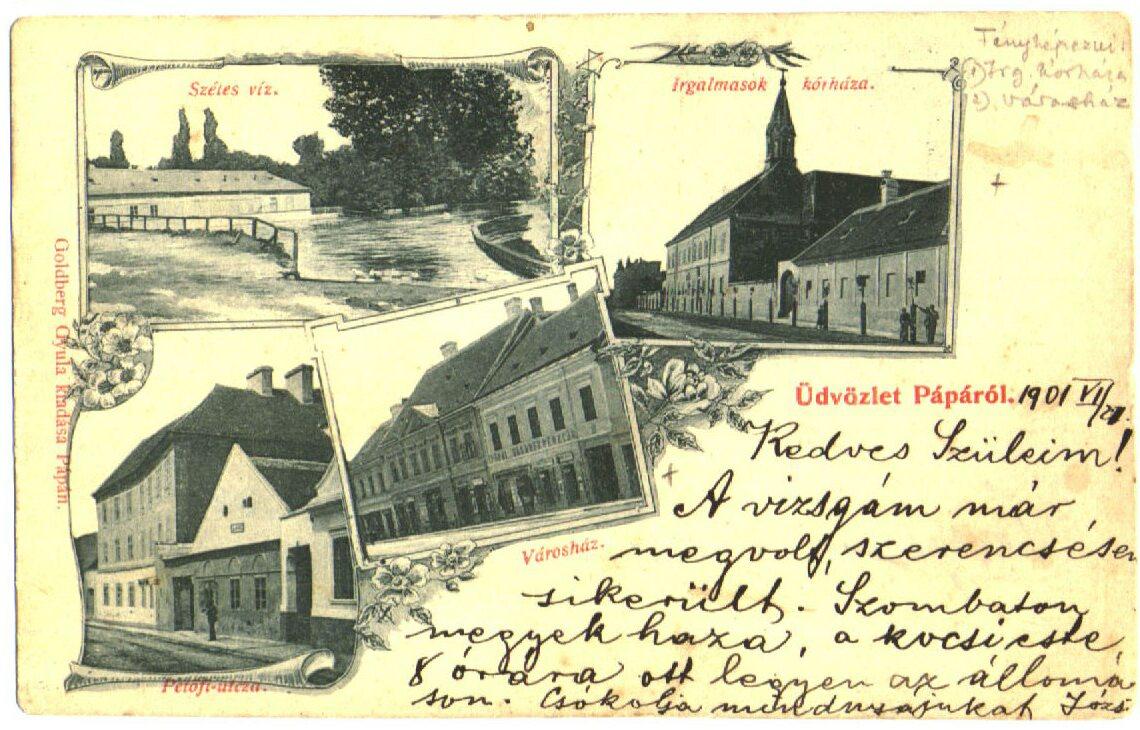 Fényképezni:
1) Irg. kórháza
2) városház
Szétes víz.
Irgalmasok kórháza.
Goldberg Gyula kiadása Pápán.
Üdvözlet Pápáról. 1901 VI/21.
Kedves Szüleim!
A vizsgám már
megvolt, szerencsésen
sikerült. Szombaton
megyek haza, a kocsi este
8 órára ott legyen az állomá
son. Csókolja mindnyájukat Józsi
Városház.
Petőfi-utcza.